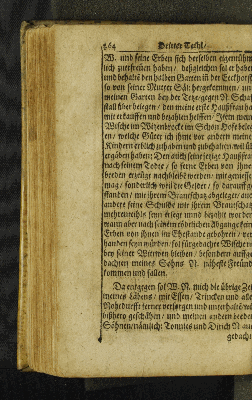 264 Dritter Theil/
W. und seine Erben sich derselben eigenthüm-
lich zuerfreuen haben/ deßgleichen sol er haben
und behalten den halben Garten in der Eckhorst
so von seiner Mutter Säl: hergekommen/ und
meinen Garten bey der
stall über belegen/ den meine erste Haußfrau ha-
mir erkauffen und bezahlen helffen/
Wische im belege-
en/ welche Güter ich ihme vor andern meinen
Kindern erblich zuhaben und zubehalten/ wil
ergeben haben; Den auch seine jetzige Haußfrau
nach seinem Todte/ so ferne Erben von ihnen
beeden erzeugt nachbleiben werden/
mag/ sonderlich weil die Gelder/ so darauff ge-
standen/ mit ihrem Brautschatz abgeleget/ auch
andere seine Schulde mit ihrem Brautschatz
mehrentheils sein erlegt und bezahlt worden
wann aber nach seinem tödtlichen Abgange keine
Erben von ihnen im Ehestande gebohren/ ver-
handen seyn würden/ sol fürgedachte Wische
bey seiner Witwen bleiben/ besondern auff
dachten meines Sohns N. näheste Freunde
kommen und fallen.
Da entgegen sol W. N. mich die übrige Zeit
meines Läbens/ mit Essen/ Trincken und aller
Nohtdurfft ferner versorgen und unterhalten/
bißhero geschähen/ und meinen andern beeden
Söhnen/ nämlich: Tonnies und Dirich N.
gedacht